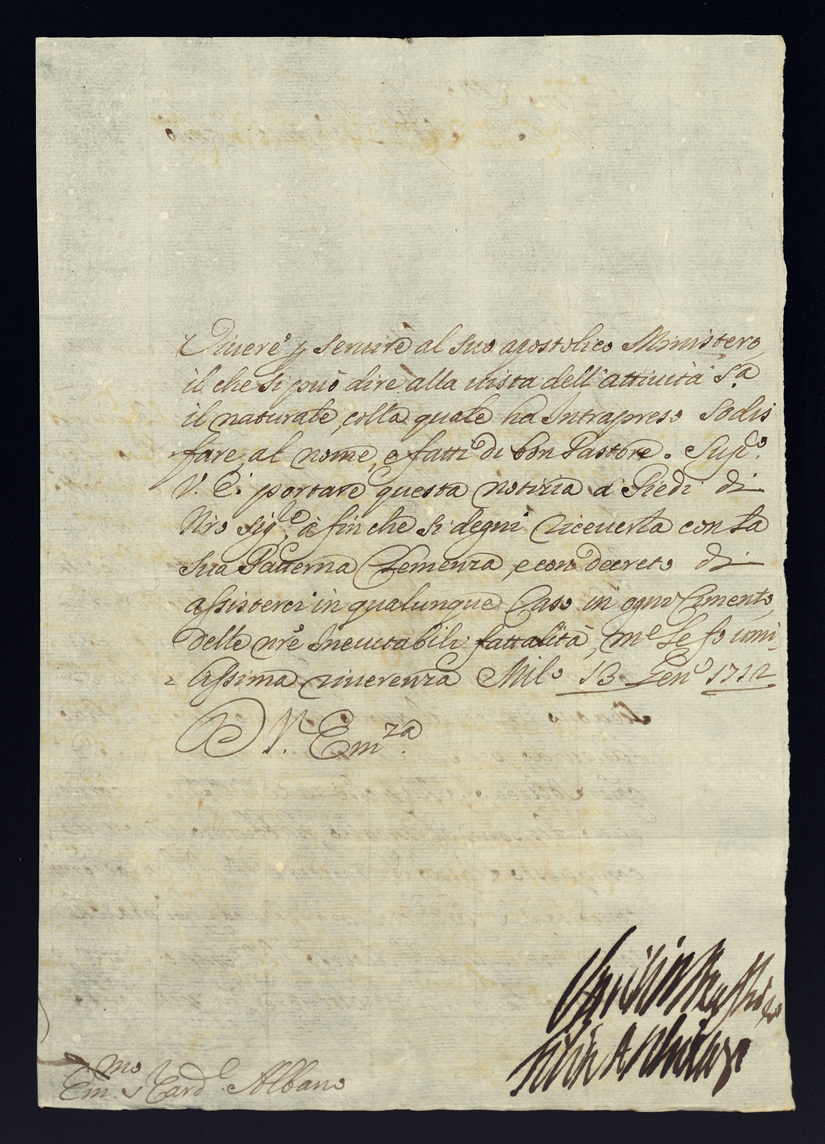 Viuere, e seruire al suo apostolico Ministero,
il che si può dire alla uista dell'attiuità S.a
il naturale, colla quale ha Intrapreso Sodis
fare, al nome, e fatti di bon Pastore. Sup.o
V. E. portare questa notizia a' Piedi di
Nro Sig.e, à fin che si degni riceuerla con la
Sua Paterna Clemenza, e con decreto di
assisterci in qualunque Caso in ogni Cimento
delle nre Ineuitabili fattalità, m.e Le fo umi-
lissima riuerenza Mil.o 13 Gen.o 1712
D V.ra Em.za
Em.mo S. Card.l Albano